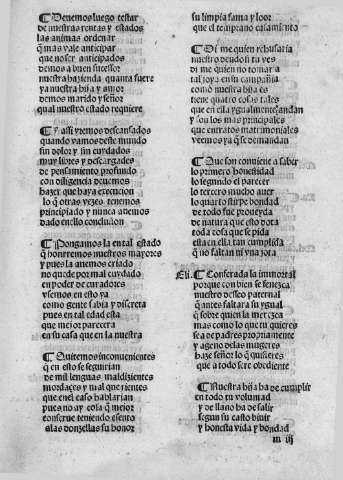 ¶ Deuemos luego testar
de nuestras rentas y estados
las animas ordenar
q̃ mas vale anticipar
que no ser anticipados
demos a buen sucessor
nuestra hazienda quanta fuere
y a nuestra hija y amor
demos marido y señor
qual nuestro estado requiere
¶ Y assi yremos descansados
quando vamos deste mundo
sin dolor y sin cuydados
muy libres y descargados
de pensamiento profundo
con diligencia deuemos
hazer que haya execucion
lo q̃ otras vezes tenemos
principiado y nunca auemos
dado en ello conclusion
¶ Pongamos la en tal estado
q̃ honrremos nuestros mayores
y pues la auemos criado
no quede por mal cuydado
en poder de curadores
vsemos en esto ya
como gente sabia y discreta
pues en tal edad esta
que mejor parecera
en su casa que en la nuestra
¶ Quitemos inconuenientes
q̃ en esto se seguirian
de mil lenguas maldizientes
mordaces y mal querientes
que en el caso hablarian
pues no ay cosa q̃ mejor
conserue teniendo esento
a las donzellas su honor
su limpia fama y loor
que el temprano casamiento
¶ Di me quien rehusaria
nuestro deudo si tu ves
di me quien no tomar a
tal joya en su compañia
como nuestra hija es
tiene quatro cosas tales
que en ella ygualmente andan
y son los mas principales
que en tratos matrimoniales
veemos ya q̃ se demandan
¶ Que son conuiene a saber
lo primero honestidad
lo segundo el parecer
lo tercero mucho auer
lo quarto stirpe bondad
de todo fue proueyda
de natura que esto dota
toda cosa que se pida
esta en ella tan cumplida
q̃ no faltan ni vna jota
Eli. ¶ Conserada la immortal
porque con bien se fenezca
nuestro desseo paternal
q̃ antes faltara su ygual
q̃ sobre quien la merezca
mas como lo que tu quieres
sea de padres propriamente
y ageno de las mugeres
haze señor lo q̃ quisieres
que a todo sere obediente
¶ Nuestra hija ha de cumplir
en todo tu voluntad
y de llano ha de salir
segun su casto biuir
y honesta vida y bondad
m iij